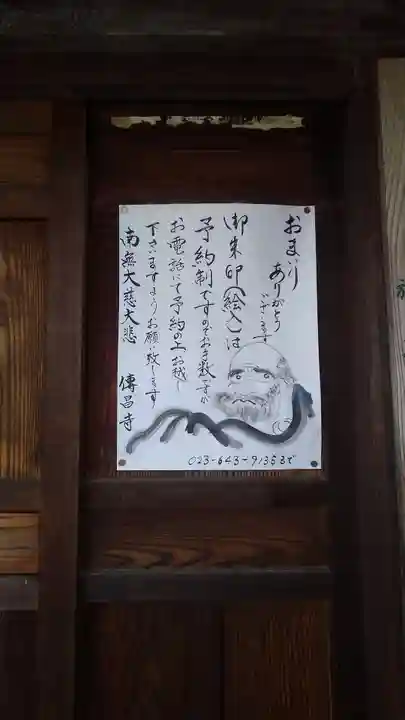 おまいり
ありがとう
ございます
御朱印(絵入)は
予約制ですのでお手数ですが
お電話にて予約の上お越し
下さいますようお願い致します
南無大慈大悲 傳昌寺
023-643-9135まで